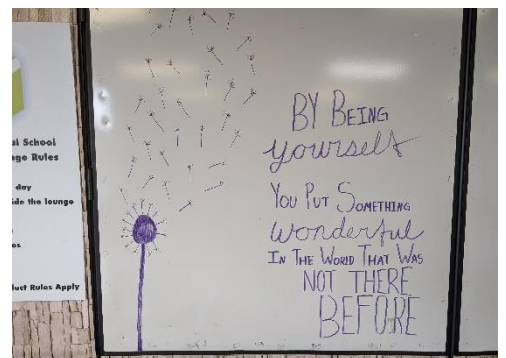 al School
ge Rules
day
de the lounge
duct Rules Apply
BY BEING
yourself
YOU PUT SOMETHING
wonderful
IN THE WORLD THAT WAS
NOT THERE
BEFORE